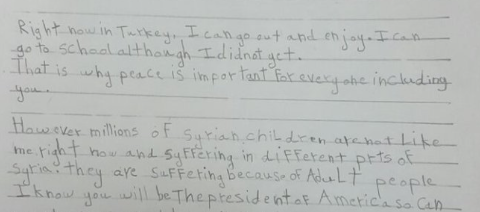 Right now in Turkey, I can go out and enjoy. I can
go to school although I didnot yet.
That is why peace is important for everyone including
you.
However millions of Syrian children are not Like
me right now and suffering in different prts of
Syria. they are suffering because of Adult people
I know you will be The president of America so can